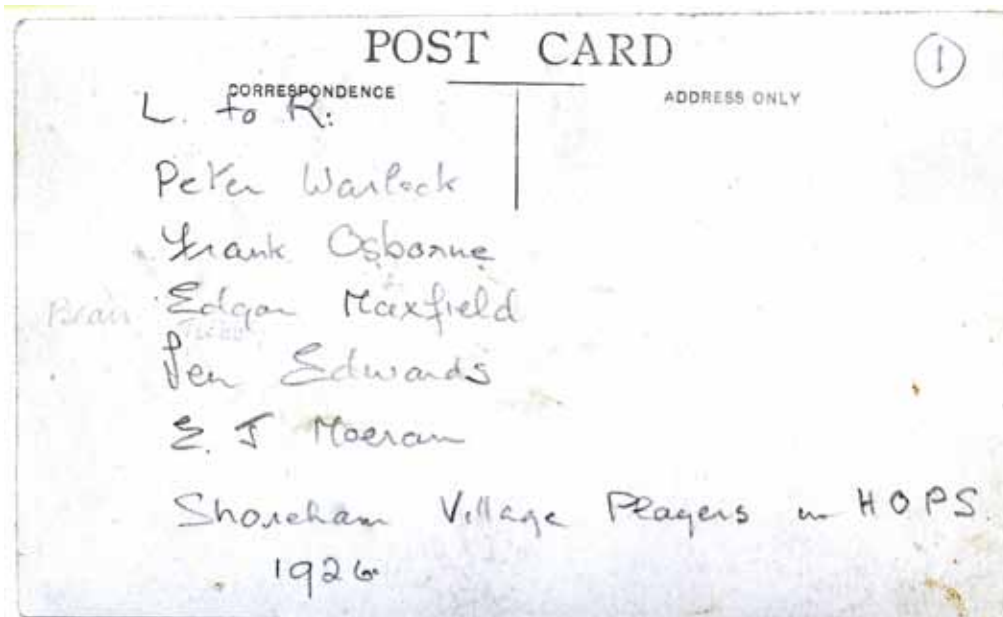 POST CARD
1
CORRESPONDENCE
ADDRESS ONLY
L. to R:
Peter Warlock
Frank Osborne
Edgar Maxfield
Pen Edwards
E. J Moeran
Shoreham Village Players in HOPS
1926